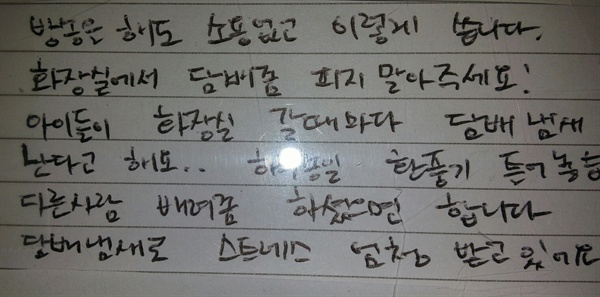 방송은 해도 소용없고 이렇게 씁니다.
화장실에서 담배좀 피지 말아주세요!
아이들이 화장실 갈때마다 담배 냄새
난다고 해요.. 환풍기 틀어놓음
다른사람 배려좀 하셨으면 합니다
담배냄새로 스트레스 엄청 받고 있어요